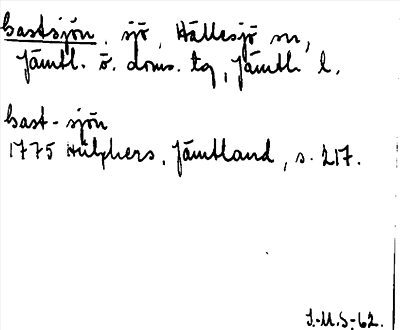 Gastsjön, sjö, Hällesjö sn,
Jämtl. ö. doms. tg, Jämtl. l.
Gast-sjön
1775 Hülphers, Jämtland, s. 217.
J.-U.S.-62.